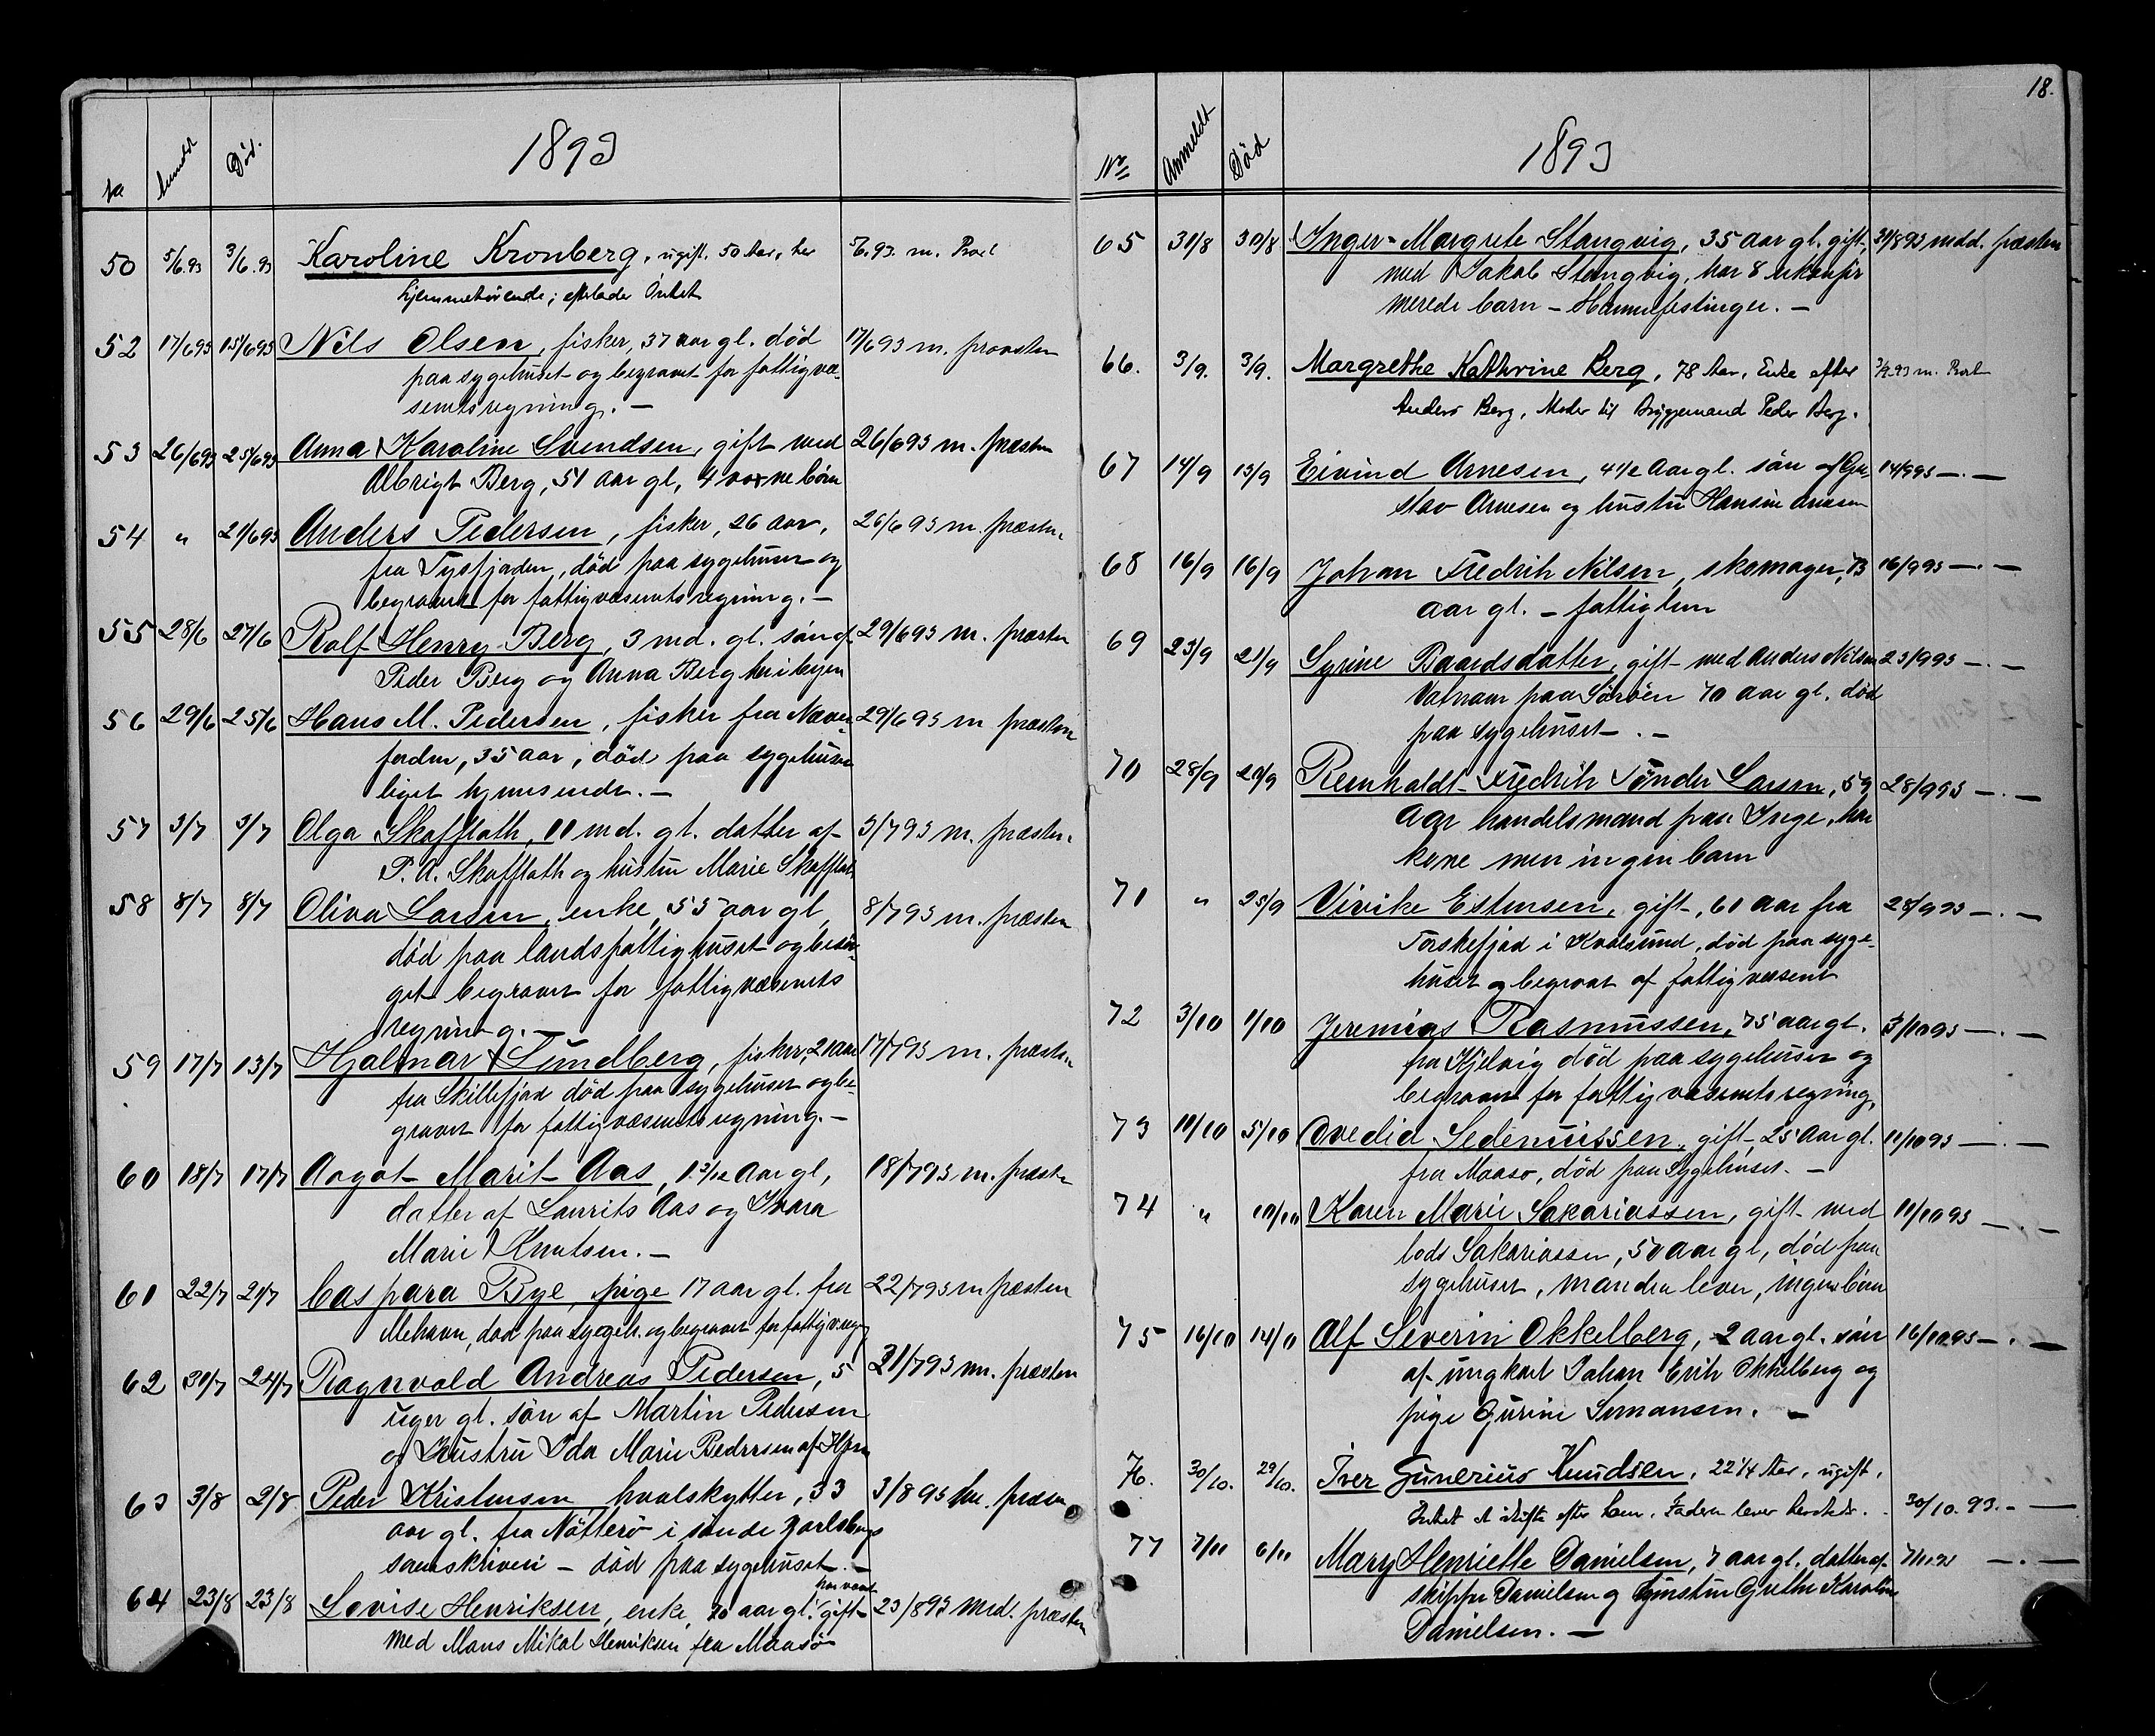 18.
No Anmeldt Død. 1893
50 5/6.93 3/6.93 Karoline Kronberg, ugift. 50 Aar, her 5/6.93. m. Prost
hjemmehørende; efterlader Intet
52 17/693 15/693 Nils Olsen, fisker, 37 aar gl. død 17/693 m. provsten
paa sygehuset og begravet for fattigvæ-
senets regning. —
53 26/693 25/693 Anna Karoline Svendsen, gift med 26/693 m. præsten
Albrigt Berg, 51 aar gl, 4 voxne børn
54 " 21/693 Anders Pedersen, fisker, 26 aar, 26/693 m. præsten
fra Tysfjorden, død paa sygehuset og
begravet for fattigvæsenets regning. —
55 28/6 27/6 Rolf Henry Berg, 3 md. gl. søn af 29/693 m. præsten
Peder Berg og Anna Berg her i byen
56 29/6 25/6 Hans M. Pedersen, fisker fra 29/693 m præsten
35 aar, død paa sygehuset
liget hjemsendt. —
57 3/7 3/7 Olga Skaffloth, 11 md. gl. datter af 3/793 m. præsten
P. A. Skaffloth og hustru Marie Skaffloth
58 8/7 8/7 Oliva Larsen, enke, 55 aar gl, 8/793 m. præsten
død paa landsfattighuset og besør-
get begravet for fattigvæsenets
regning. —
59 17/7 13/7 Hjalmar Lundberg, fisker, 21 aar 17/793 m. præsten
fra Skillefjord død paa sygehuset og be-
gravet for fattigvæsenets regning. —
60 18/7 17/7 Aagot Marit Aas, 1 3/12 aar gl, 18/793 m. præsten
datter af Laurits Aas og
Marie Knutsen. —
61 22/7 21/7 Caspara Bye, pige 17 aar gl. fra 22/793 m præsten
Mehavn, død paa sygeh. og begravet for fattigv. regng
62 31/7 24/7 Ragnvald Andreas Pedersen, 5 31/793 m. præsten
uger gl. søn af Martin Pedersen
og Hustru Ida Marie Pedersen af Hfest
63 3/8 2/8 Peder Kristensen, hvalskytter, 33 3/893 m. præsten
aar gl. fra Nøtterø i søndre Jarlsbergs
sorenskriveri — død paa sygehuset. —
64 23/8 23/8 Lovise Henriksen, enke, 70 aar gl. har vært gift 23/893 med. præsten
med Mons Mikal Henriksen fra Maasø
No Anmeldt Død 1893
65 31/8 30/8 Inger-Margrete Stangvig, 35 aar gl. gift, 31/893 medd. præsten
med Jakob Stangvig, har 8 ukonfir
merede barn — Hammefestinger. —
66. 3/9. 3/9. Margrethe Kathrine Berg, 78 Aar, Enke efter 3/9.93 m. Prost
Anders Berg, Moder til Bryggemand Peder Berg.
67 14/9 13/9 Eivind Arnesen, 4 1/2 Aar gl. søn af Gu- 14/993 —.—
stav Arnesen og hustru Hansine Arnesen
68 16/9 16/9 Johan Fredrik Nilsen, skomager, 73 16/993 —.—
aar gl. — fattiglem
69 23/9 21/9 Syrine Baardsdatter, gift med Anders Nilsen 23/993 —.—
Vatnavn paa Sørøen 70 aar gl. død
paa sygehuset. —
70 28/9 20/9 Reinholdt Fredrik Tønder Larsen, 59 28/993 —.—
Aar handelsmand paa Ingø, har
kone men ingen barn
71 " 25/9 Vivike Estensen, gift, 61 aar fra 28/993 —.—
Torskefjord i Kvalsund, død paa syge-
huset og begravet af fattigvæsenet
72 3/10 1/10 Jeremias Rasmussen, 75 aar gl. 3/1093 —.—
fra Kjelvig død paa sygehuset og
begravet for fattigvæsenets regning.
73 10/10 5/10 Ovedia Sedeniussen, gift, 25 aar gl. 11/1093 —.—
fra Maasø, død paa Sygehuset. —
74 " 10/10 Karen Marie Sakariassen, gift med 11/1093 —.—
lods Sakariassen, 50 aar gl, død paa
sygehuset, manden lever, ingen børn
75 16/10 14/10 Alf Severin Okkelberg, 2 aar gl. søn 16/1093 —.—
af ungkarl Johan Erik Okkelberg og
pige Gurine Simonsen. —
76. 30/10. 29/10. Iver Gunerius Knudsen, 22 1/4 Aar, ugift,
Intet at skifte efter ham. Faderen lever herstedts. 30/10.93. —
77 7/11 6/11 Mary Henriette Danielsen, 7 aar gl. datter af 7/11 93 —.—
skipper Danielsen og hustru Grethe Karoline
Danielsen. —